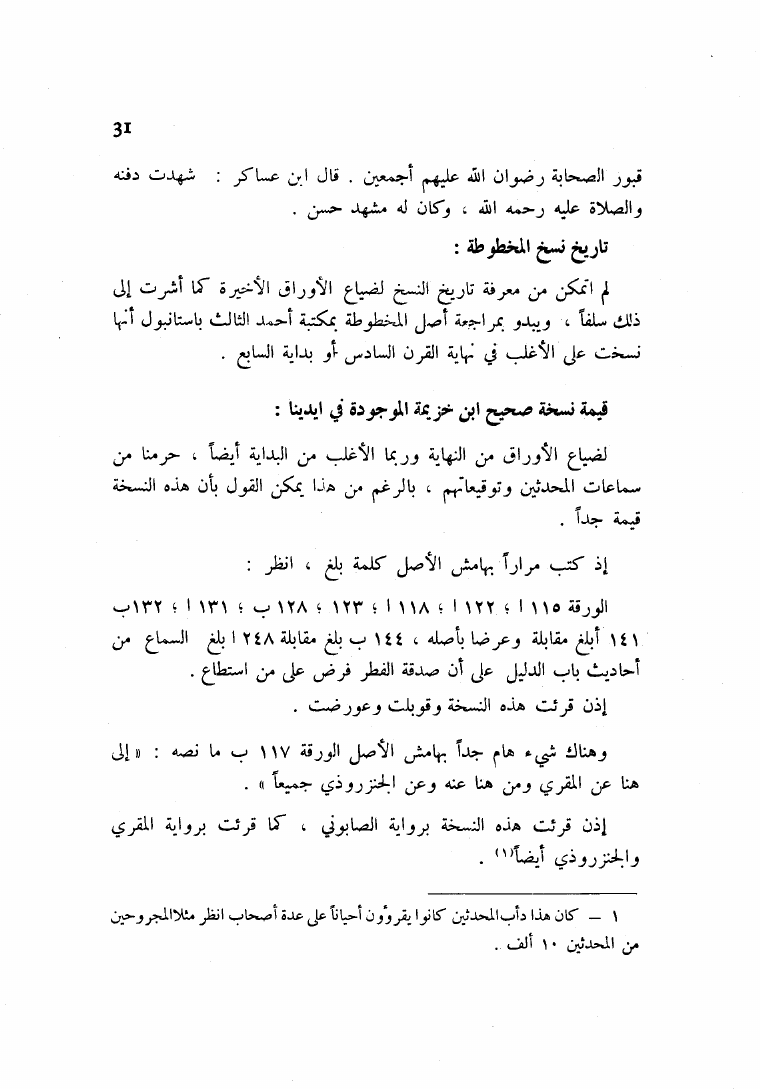 31
قبور الصحابة رضوان الله عليهم أجمعين . قال ابن عساكر : شهدت دفنه
والصلاة عليه رحمه الله ، وكان له مشهد حسن .
تاريخ نسخ المخطوطة :
لم اتمكن من معرفة تاريخ النسخ لضياع الأوراق الأخيرة كما أشرت إلى
ذلك سلفاً ، ويبدو بمراجعة أصل المخطوطة بمكتبة أحمد الثالث باستانبول أنها
نسخت على الأغلب في نهاية القرن السادس أو بداية السابع .
قيمة نسخة صحيح ابن خزيمة الموجودة في ايدينا :
لضياع الأوراق من النهاية وربما الأغلب من البداية أيضاً ، حرمنا من
سماعات المحدثين وتوقيعاتهم ، بالرغم من هذا يمكن القول بأن هذه النسخة
قيمة جداً .
إذ كتب مراراً بهامش الأصل كلمة بلغ ، انظر :
الورقة ١١٥ ا ؛ ١٢٢ ا ؛ ١١٨ ا ؛ ١٢٣ ؛ ١٢٨ ب ؛ ١٣١ ا ؛ ١٣٢ب
١٤١ أبلغ مقابلة وعرضا بأصله ، ١٤٤ ب بلغ مقابلة ٢٤٨ ا بلغ السماع من
أحاديث باب الدليل على أن صدقة الفطر فرض على من استطاع .
إذن قرئت هذه النسخة وقوبلت وعورضت .
وهناك شيء هام جداً بهامش الأصل الورقة ١١٧ ب ما نصه : « إلى
هنا عن المقري ومن هنا عنه وعن الجنزروذي جميعاً » .
إذن قرئت هذه النسخة برواية الصابوني ، كما قرئت برواية المقري
والجنزروذي أيضاً(١) .
١ – كان هذا دأب المحدثين كانوا يقرؤون أحياناً على عدة أصحاب انظر مثلا المجروحين
من المحدثين ١٠ ألف .